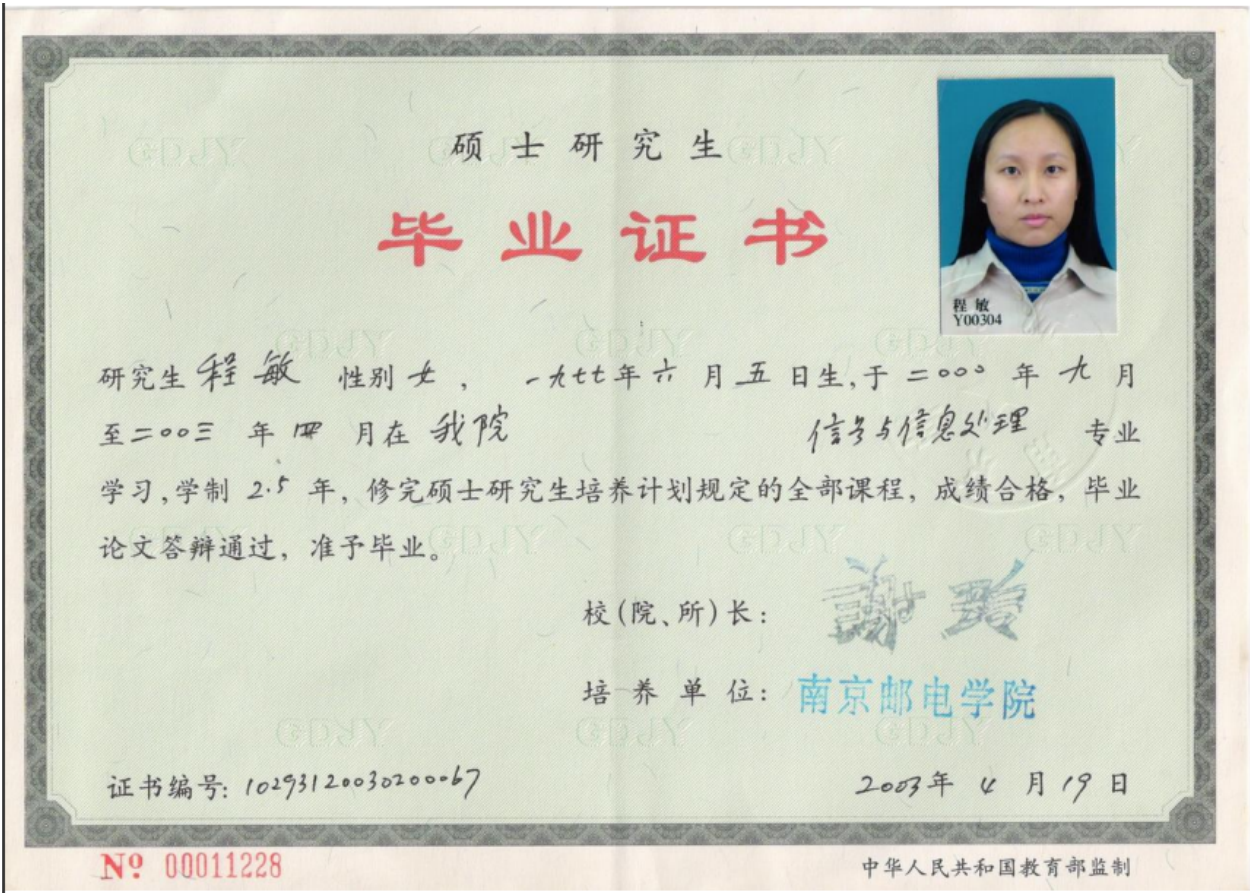 硕士研究生
毕业证书
程敏
Y00304
研究生 程敏 性别 女 ， 一九七七年 六 月 五 日生,于 二〇〇〇 年 九 月
至二〇〇三 年 四 月在 我院 信号与信息处理 专业
学习,学制 2.5 年，修完硕士研究生培养计划规定的全部课程，成绩合格，毕业
论文答辩通过，准予毕业。
校(院、所)长：
培养单位：南京邮电学院
证书编号: 10293120030200067
2003年 4 月 19 日
№ 00011228
中华人民共和国教育部监制
GDJY